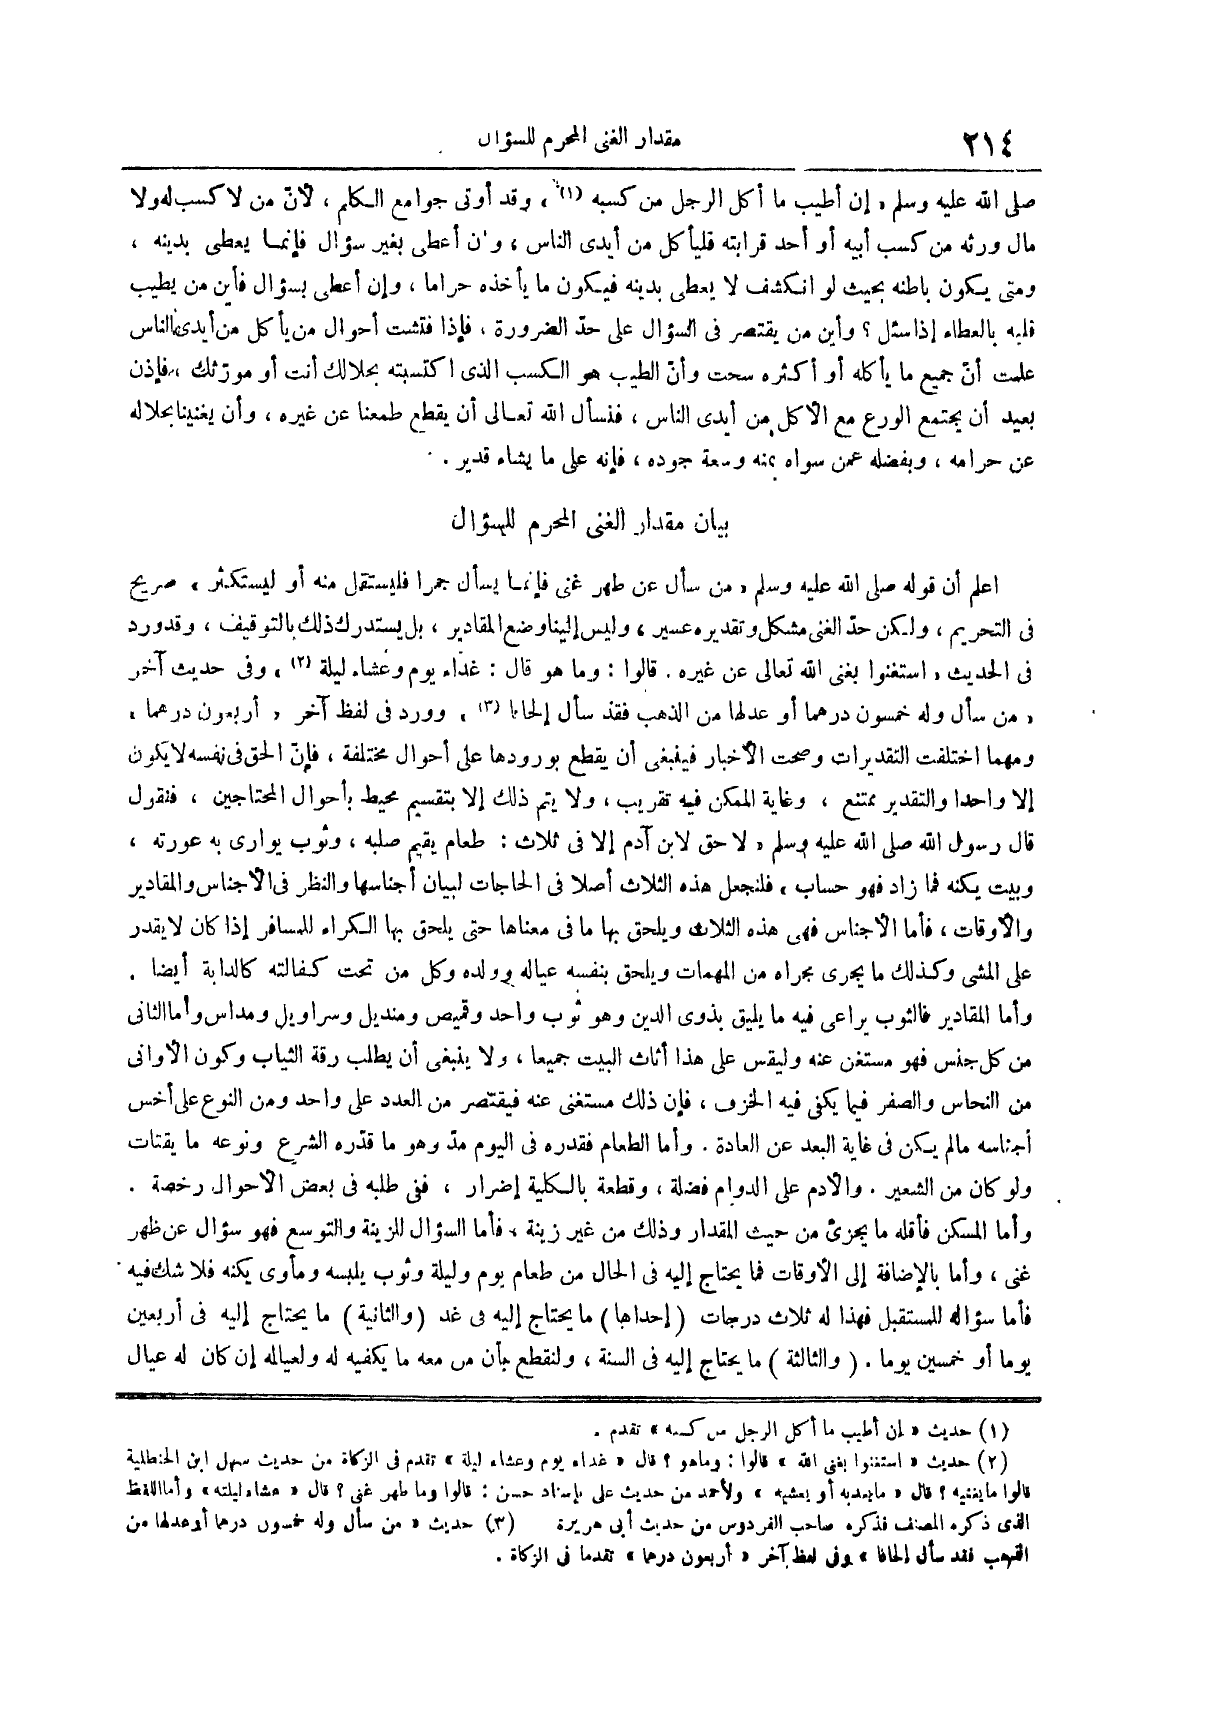 ٢١٤
مقدار الغنى المحرم للسؤال
صلى الله عليه وسلم « إن أطيب ما أكل الرجل من كسبه (١) » وقد أوتى جوامع الكلم ، لأنّ من لا كسب له ولا
مال ورثه من كسب أبيه أو أحد قرابته فليأكل من أيدى الناس ، وإن أعطى بغير سؤال فإنما يعطى بدينه ،
ومتى يكون باطنه بحيث لو انكشف لا يعطى بدينه فيكون ما يأخذه حراما ، وإن أعطى بسؤال فأين من يطيب
قلبه بالعطاء إذا سئل ؟ وأين من يقتصر فى السؤال على حدّ الضرورة ، فإذا فتشت أحوال من يأكل من أيدى الناس
علمت أنّ جميع ما يأكله أو أكثره سحت وأنّ الطيب هو الكسب الذى اكتسبته بحلالك أنت أو مورّثك ، فإذن
بعيد أن يجتمع الورع مع الأكل من أيدى الناس ، فنسأل الله تعالى أن يقطع طمعنا عن غيره ، وأن يغنينا بحلاله
عن حرامه ، وبفضله عمن سواه بمنه وسعة جوده ، فإنه على ما يشاء قدير .
بيان مقدار الغنى المحرم للسؤال
اعلم أن قوله صلى الله عليه وسلم « من سأل عن ظهر غنى فإنما يسأل جمرا فليستقل منه أو ليستكثر » صريح
فى التحريم ، ولكن حدّ الغنى مشكل وتقديره عسير ، وليس إلينا وضع المقادير ، بل يستدرك ذلك بالتوقيف ، وقد ورد
فى الحديث « استغنوا بغنى الله تعالى عن غيره . قالوا : وما هو قال : غداء يوم وعشاء ليلة (٢) » وفى حديث آخر
« من سأل وله خمسون درهما أو عدلها من الذهب فقد سأل إلحافا (٣) » وورد فى لفظ آخر « أربعون درهما »
ومهما اختلفت التقديرات وصحت الأخبار فينبغى أن يقطع بورودها على أحوال مختلفة ، فإنّ الحق فى نفسه لا يكون
إلا واحدا والتقدير ممتنع ، وغاية الممكن فيه تقريب ، ولا يتم ذلك إلا بتقسيم محيط بأحوال المحتاجين ، فنقول
قال رسول الله صلى الله عليه وسلم « لا حق لابن آدم إلا فى ثلاث : طعام يقيم صلبه ، وثوب يوارى به عورته ،
وبيت يكنه فما زاد فهو حساب » فلنجعل هذه الثلاث أصلا فى الحاجات لبيان أجناسها والنظر فى الأجناس والمقادير
والأوقات ، فأما الأجناس فهى هذه الثلاث ويلحق بها ما فى معناها حتى يلحق بها الكراء للمسافر إذا كان لا يقدر
على المشى وكذلك ما يجرى مجراه من المهمات ويلحق بنفسه عياله وولده وكل من تحت كفالته كالدابة أيضا .
وأما المقادير فالثوب يراعى فيه ما يليق بذوى الدين وهو ثوب واحد وقميص ومنديل وسراويل ومداس وأما الثانى
من كل جنس فهو مستغن عنه وليقس على هذا أثاث البيت جميعا ، ولا ينبغى أن يطلب رقة الثياب وكون الأوانى
من النحاس والصفر فيما يكفى فيه الخزف ، فإن ذلك مستغنى عنه فيقتصر من العدد على واحد ومن النوع على أخس
أجناسه مالم يكن فى غاية البعد عن العادة . وأما الطعام فقدره فى اليوم مدّ وهو ما قدّره الشرع ونوعه ما يقتات
ولو كان من الشعير . والأدم على الدوام فضلة ، وقطعة بالكلية إضرار ، ففى طلبه فى بعض الأحوال رخصة .
وأما المسكن فأقله ما يجزئ من حيث المقدار وذلك من غير زينة ، فأما السؤال للزينة والتوسع فهو سؤال عن ظهر
غنى ، وأما بالإضافة إلى الأوقات فما يحتاج إليه فى الحال من طعام يوم وليلة وثوب يلبسه ومأوى يكنه فلا شك فيه
فأما سؤاله للمستقبل فهذا له ثلاث درجات ( إحداها ) ما يحتاج إليه فى غد ( والثانية ) ما يحتاج إليه فى أربعين
يوما أو خمسين يوما . ( والثالثة ) ما يحتاج إليه فى السنة ، ولنقطع بأن من معه ما يكفيه له ولعياله إن كان له عيال
(١) حديث « إن أطيب ما أكل الرجل من كسبه » تقدم .
(٢) حديث « استغنوا بغنى الله » قالوا : وماهو ؟ قال « غداء يوم وعشاء ليلة » تقدم فى الزكاة من حديث سهل ابن الحنظلية
قالوا ما يغنيه ؟ قال « ما يغديه أو يعشيه » ولأحمد من حديث على بإسناد حسن : قالوا وما ظهر غنى ؟ قال « عشاء ليلته » وأما اللفظ
الذى ذكره المصنف فذكره صاحب الفردوس من حديث أبى هريرة (٣) حديث « من سأل وله خمسون درهما أو عدلها من
الذهب فقد سأل إلحافا » وفى لفظ آخر « أربعون درهما » تقدما فى الزكاة .